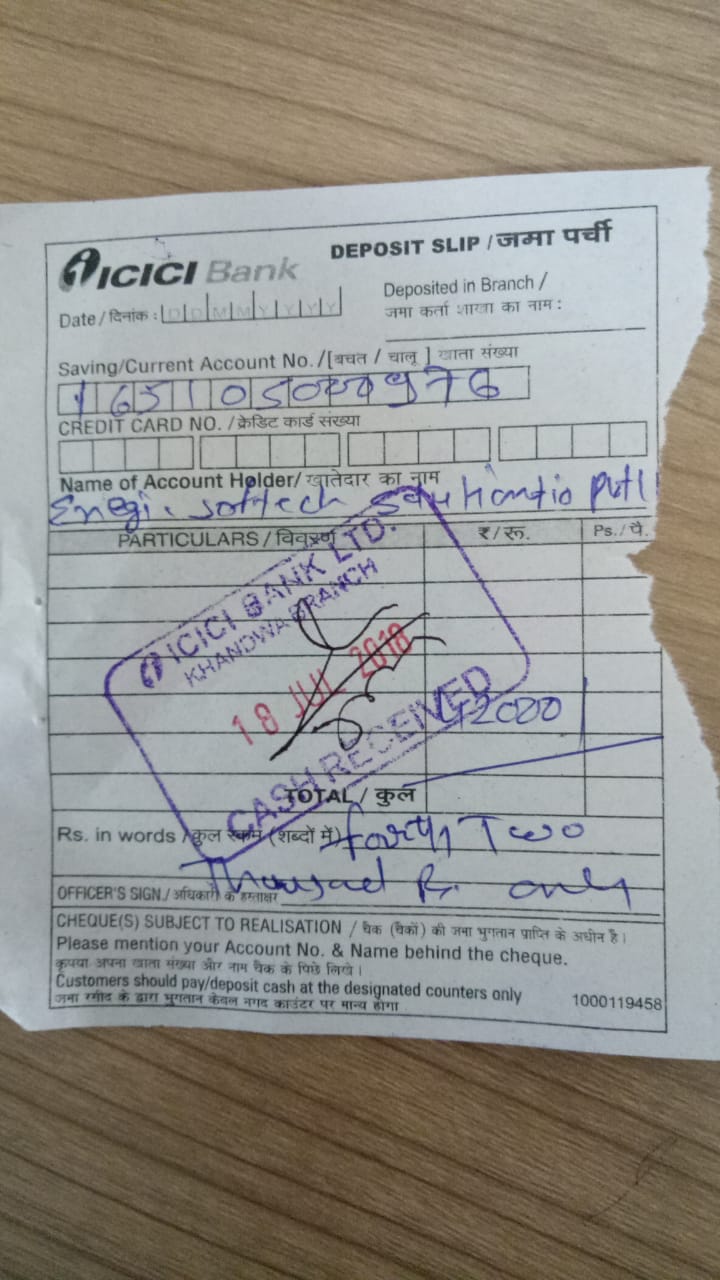 ICICI Bank
DEPOSIT SLIP / जमा पर्ची
Date / दिनांक : D D M M Y Y Y Y
Deposited in Branch /
जमा कर्ता शाखा का नाम :
Saving/Current Account No. /[बचत / चालू ] खाता संख्या
CREDIT CARD NO. / क्रेडिट कार्ड संख्या
Name of Account Holder/ खातेदार का नाम
PARTICULARS / विवरण ₹/रू. Ps./पै.
ICICI BANK LTD.
KHANDWA BRANCH
18 JUL 2018
CASH RECEIVED
42000
TOTAL / कुल
Rs. in words / कुल रकम (शब्दों में) forty Two
Thousad Rs. only
OFFICER'S SIGN./ अधिकारी के हस्ताक्षर
CHEQUE(S) SUBJECT TO REALISATION / चैक (चैकों) की जमा भुगतान प्राप्ति के अधीन है।
Please mention your Account No. & Name behind the cheque.
कृपया अपना खाता संख्या और नाम चैक के पिछे लिखे।
Customers should pay/deposit cash at the designated counters only
जमा रसीद के द्वारा भुगतान केवल नगद काउंटर पर मान्य होगा
1000119458